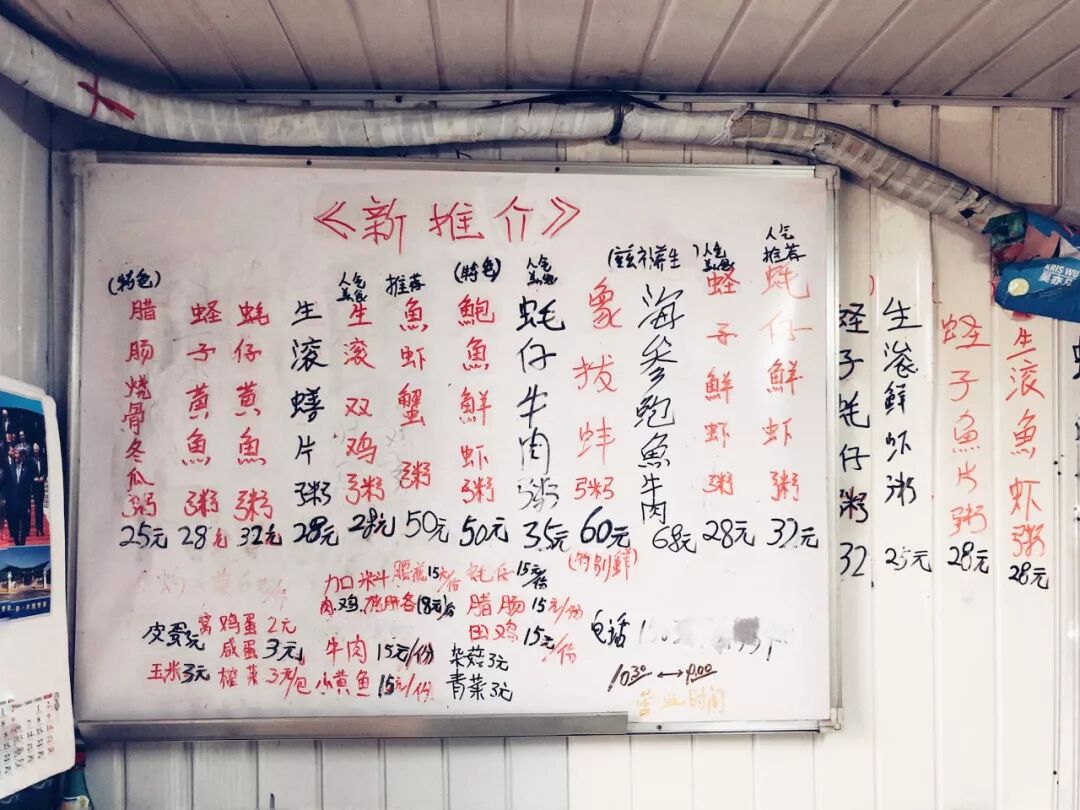 《新推介》
(特色)
腊肠烧骨冬瓜粥
25元
蛏子黄魚粥
28元
蚝仔黄魚粥
32元
生滚蟮片粥
28元
人气美食
生滚双鸡粥
28元
推荐
魚虾蟹粥
50元
(特色)
鮑魚鮮虾粥
50元
人气美食
蚝仔牛肉粥
35元
象拔蚌粥
60元
(特别鲜)
养生
海参鲍魚牛肉
68元
人气美食
蛏子鮮虾粥
28元
人气推荐
蚝仔鮮虾粥
32元
蛏子蚝仔粥
32
生滚鮮虾粥
25元
蛏子魚片粥
28元
生滚魚虾粥
28元
加口料
15元/份
蚝仔 15元/份
腊肠 15元/份
田鸡 15元/份
皮蛋
窝鸡蛋 2元
咸蛋 3元
牛肉 15元/份
杂菇 3元
玉米 3元
榨菜 3元/包
小黄鱼 15元/份
青菜 3元
电话
营业时间
KRIS WU
吴亦凡